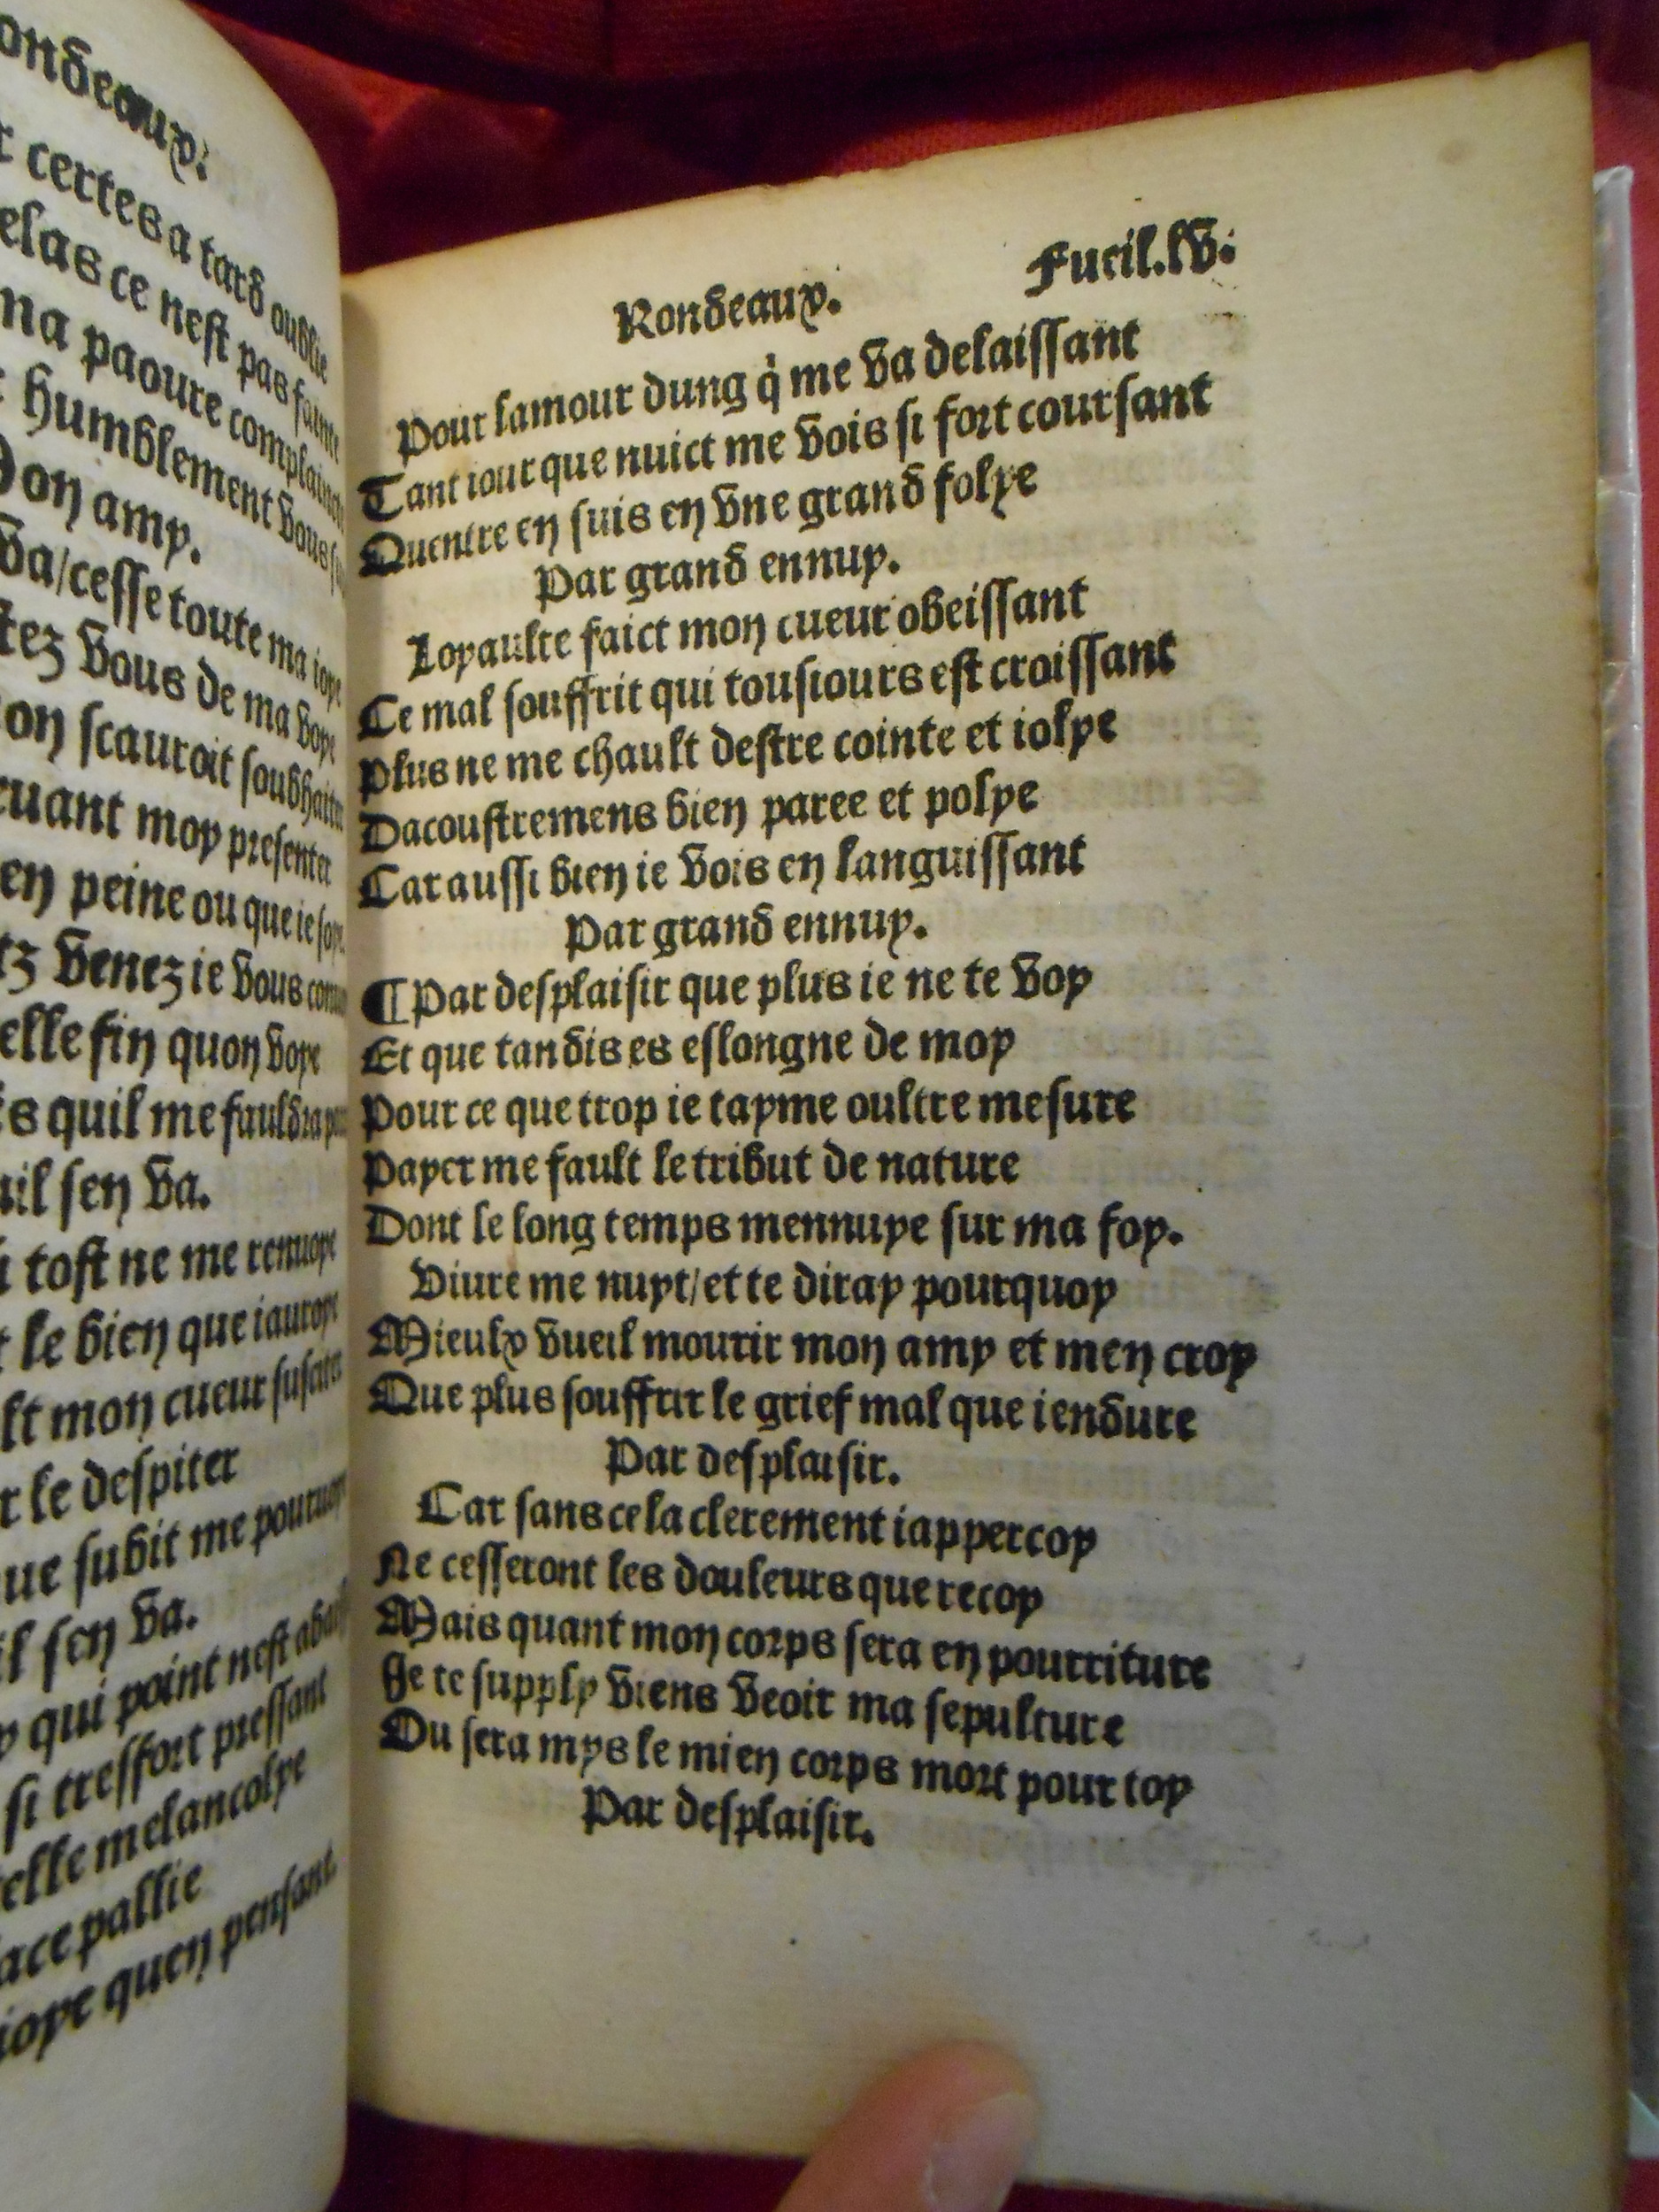 ondeaux.
certes a tard oublie
elas ce nest pas
na paoure
humblement vous
on amy.
va/cesse toute ma ioye
tez vous de ma voye
on scauroit
uant moy presenter
en peine ou que ie soye
tz venez ie vous
elle fin quon voye
s quil me fauldra
il sen va.
tost ne me renuoye
le bien que iauroye
lt mon cueur
r le despiter
ue subit me
l sen va.
qui point nest
si tresfort pressant
elle melancolye
ace pallie
ioye quen pensant
Rondeaux. Fueil.lv.
Pour lamour dung q̇ me va delaissant
Tant iour que nuict me vois si fort coursant
Quentre en suis en vne grand folye
Par grand ennuy.
Loyaulte faict mon cueur obeissant
Ce mal souffrit qui tousiours est croissant
Plus ne me chault destre cointe et iolye
Dacoustremens bien paree et polye
Car aussi bien ie vois en languissant
Par grand ennuy.
¶ Par desplaisir que plus ie ne te voy
Et que tandis es eslongne de moy
Pour ce que trop ie tayme oultre mesure
Payer me fault le tribut de nature
Dont le long temps mennuye sur ma foy.
Viure me nuyt/et te diray pourquoy
Mieulx vueil mourir mon amy et men croy
Que plus souffrir le grief mal que iendure
Par desplaisir.
Car sans cela clerement iappercoy
Ne cesseront les douleurs que recoy
Mais quant mon corps sera en pourriture
Je te supply viens veoir ma sepulture
Ou sera mys le mien corps mort pour toy
Par desplaisir.